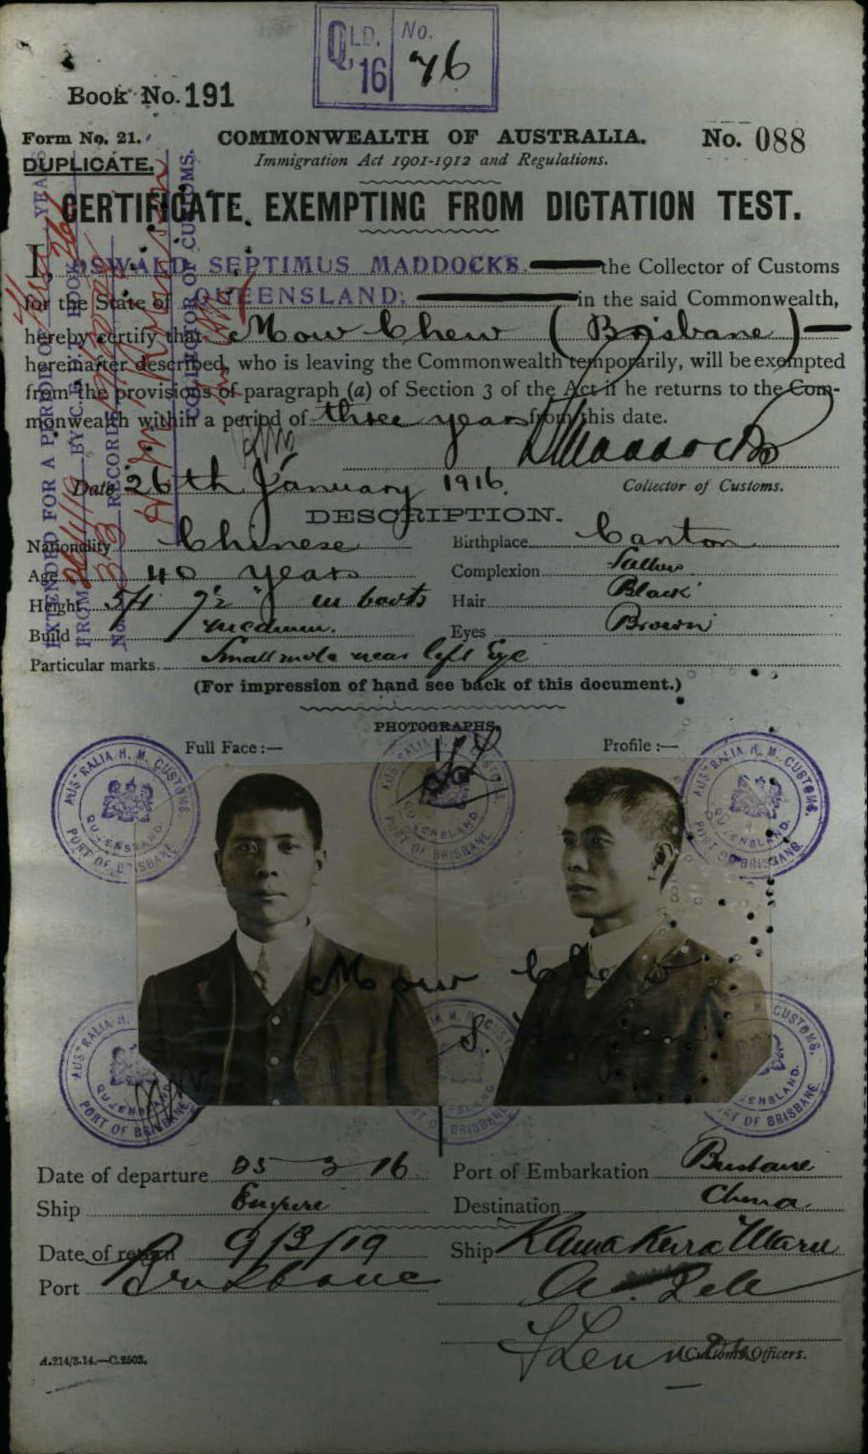 QLD. 16 No. 76
Book No. 191
Form No. 21. COMMONWEALTH OF AUSTRALIA. No. 088
DUPLICATE. Immigration Act 1901-1912 and Regulations.
CERTIFICATE EXEMPTING FROM DICTATION TEST.
I, OSWALD SEPTIMUS MADDOCKS. the Collector of Customs
for the State of QUEENSLAND. in the said Commonwealth,
hereby certify that Mow Chew (Brisbane)
hereinafter described, who is leaving the Commonwealth temporarily, will be exempted
from the provisions of paragraph (a) of Section 3 of the Act if he returns to the Com-
monwealth within a period of three years from this date.
Maddocks
Date 26th January 1916. Collector of Customs.
DESCRIPTION.
Nationality Chinese Birthplace Canton
Age 40 years Complexion Sallow
Height in boots Hair Black
Build medium. Eyes Brown
Particular marks. Small mole near left Eye
(For impression of hand see back of this document.)
PHOTOGRAPHS.
Full Face :— Profile :—
AUSTRALIA H. M. CUSTOMS QUEENSLAND. PORT OF BRISBANE
AUSTRALIA H. M. CUSTOMS QUEENSLAND. PORT OF BRISBANE
AUSTRALIA H. M. CUSTOMS QUEENSLAND. PORT OF BRISBANE
Mow Chew
AUSTRALIA H. M. CUSTOMS QUEENSLAND. PORT OF BRISBANE
AUSTRALIA H. M. CUSTOMS QUEENSLAND. PORT OF BRISBANE
AUSTRALIA H. M. CUSTOMS. QUEENSLAND. PORT OF BRISBANE
Date of departure 3 16 Port of Embarkation Brisbane
Ship Empire Destination China
Date of return 9/3/19 Ship Maru
Port Brisbane
Customs Officers.
A.214/3.14.—C.2503.
EXTENDED FOR A PERIOD OF YEARS
FROM BY C.
No. RECORDS
COLLECTOR OF CUSTOMS.